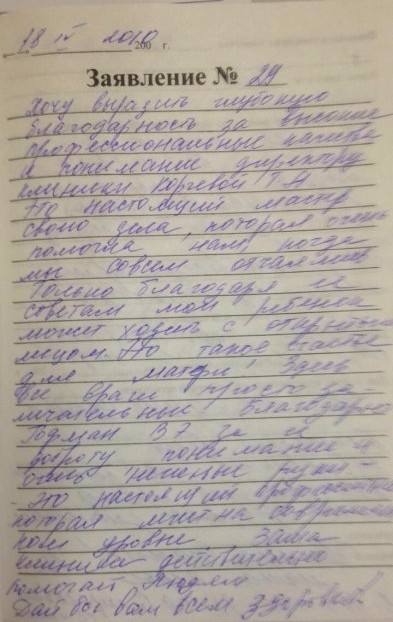 18 IV 2010
200 г.
Заявление № 29
Хочу выразить глубокую
благодарность за высокие
профессиональные качества
и понимание директору
клиники Корчевой Т.А
Это настоящий мастер
своего дела, которая очень
помогла нам, когда
мы совсем отчаялись
Только благодаря ее
советам мой ребенок
может ходить с открытым
лицом. Это такое счастье
для матери! Здесь
Все врачи просто за-
мечательные! Благодарю
Гофман В.Э за ее
доброту понимание и
очень нежные руки -
- это настоящий профессионал
которая лечит на современ
ном уровне. Ваша
клиника действительно
помогает людям
Дай бог вам всем здоровья!